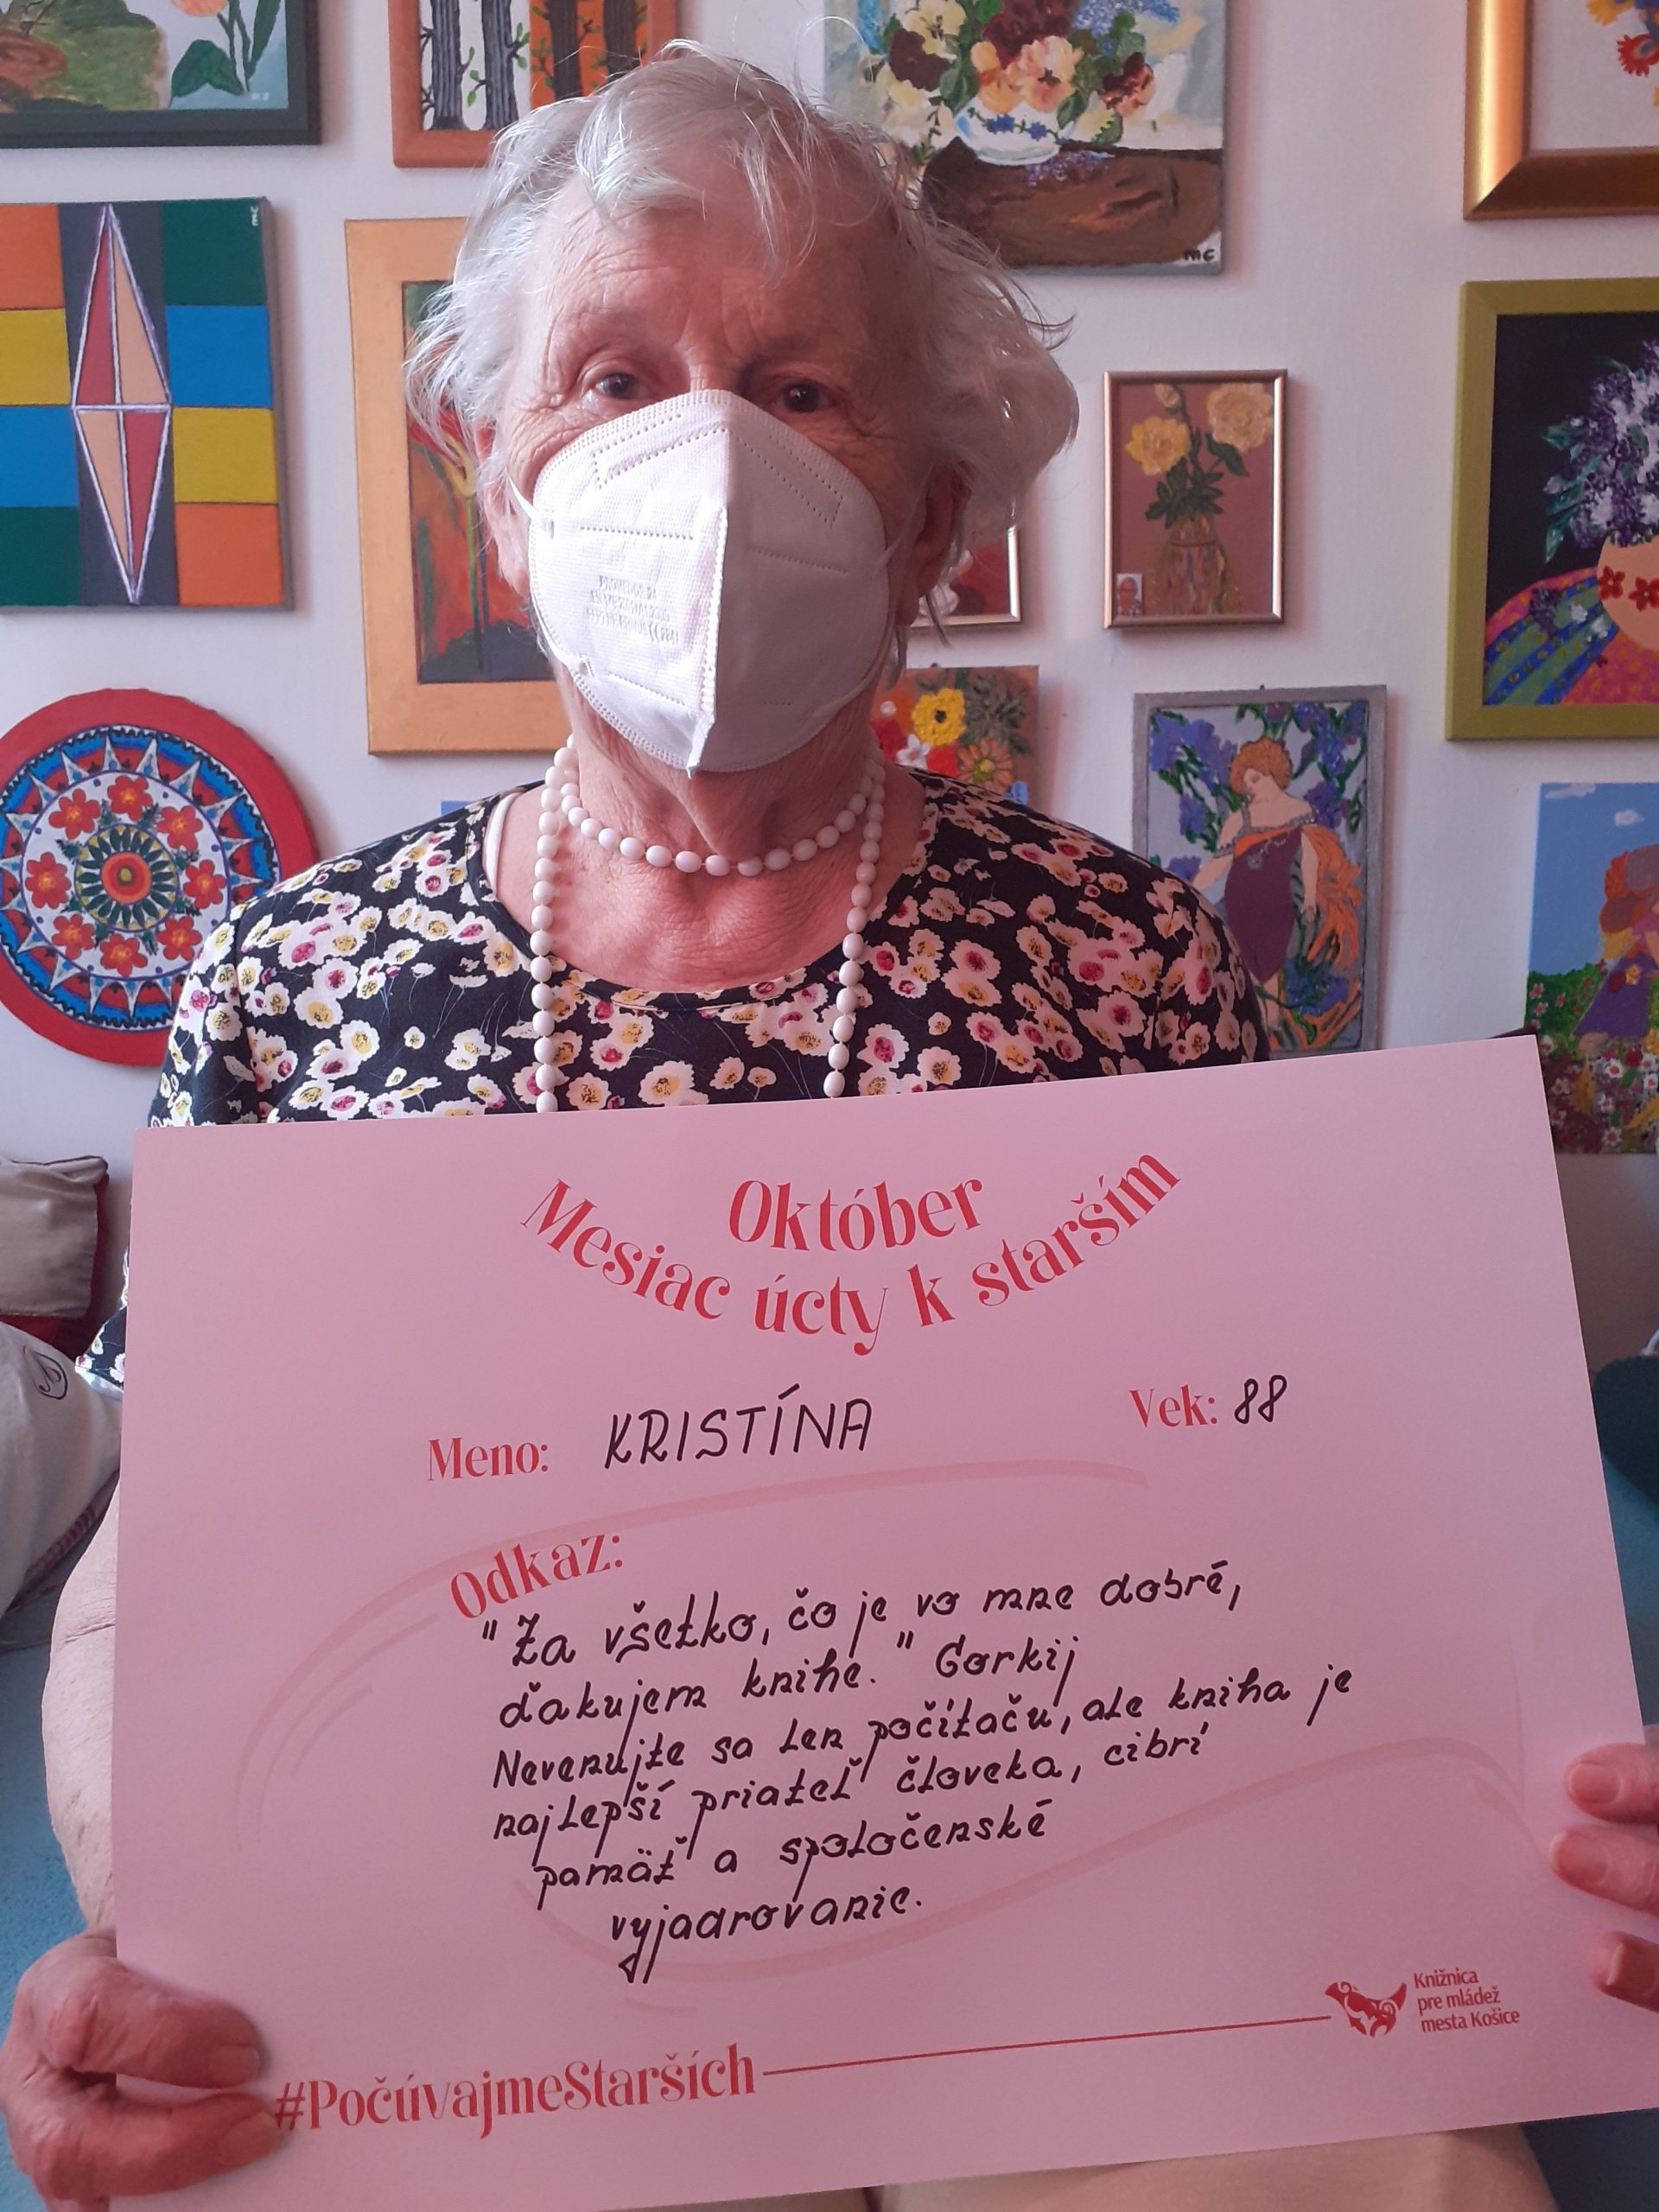 Október
Mesiac úcty k starším
Meno: KRISTÍNA
Vek: 88
Odkaz:
"Za všetko, čo je vo mne dobré,
ďakujem knihe." Gorkij
Nevenujte sa len počítaču, ale kniha je
najlepší priateľ človeka, cibrí
pamäť a spoločenské
vyjadrovanie.
Knižnica
pre mládež
mesta Košice
#PočúvajmeStarších
MC